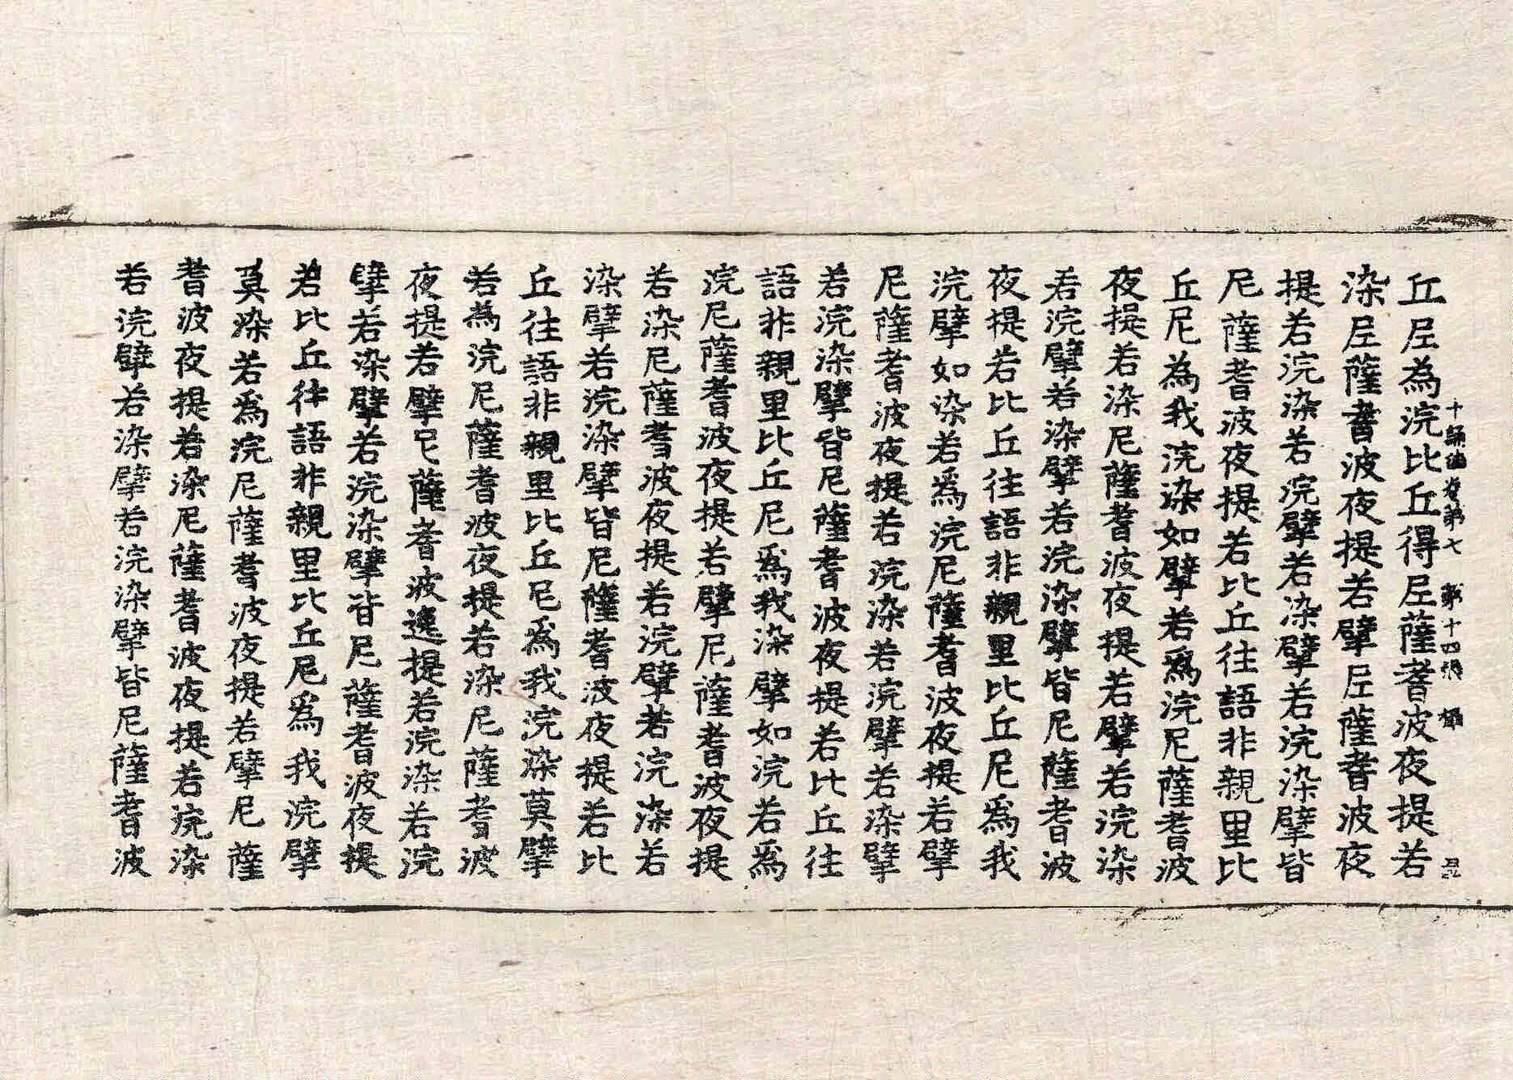 十誦律卷第七 第十四張
丘尼為浣比丘得尼薩耆波夜提若
染尼薩耆波夜提若擘尼薩耆波夜
提若浣染若浣擘若染擘若浣染擘皆
尼薩耆波夜提若比丘往語非親里比
丘尼為我浣染如擘若爲浣尼薩耆波
夜提若染尼薩耆波夜提若擘若浣染
若浣擘若染擘若浣染擘皆尼薩耆波
夜提若比丘往語非親里比丘尼爲我
浣擘如染若爲浣尼薩耆波夜提若擘
尼薩耆波夜提若浣染若浣擘若染擘
若浣染擘皆尼薩耆波夜提若比丘往
語非親里比丘尼爲我染擘如浣若爲
浣尼薩耆波夜提若擘尼薩耆波夜提
若染尼薩耆波夜提若浣擘若浣染若
染擘若浣染擘皆尼薩耆波夜提若比
丘往語非親里比丘尼爲我浣染莫擘
若為浣尼薩耆波夜提若染尼薩耆波
夜提若擘尼薩耆波逸提若浣染若浣
擘若染擘若浣染擘皆尼薩耆波夜提
若比丘往語非親里比丘尼爲我浣擘
莫染若爲浣尼薩耆波夜提若擘尼薩
耆波夜提若染尼薩耆波夜提若浣染
若浣擘若染擘若浣染擘皆尼薩耆波